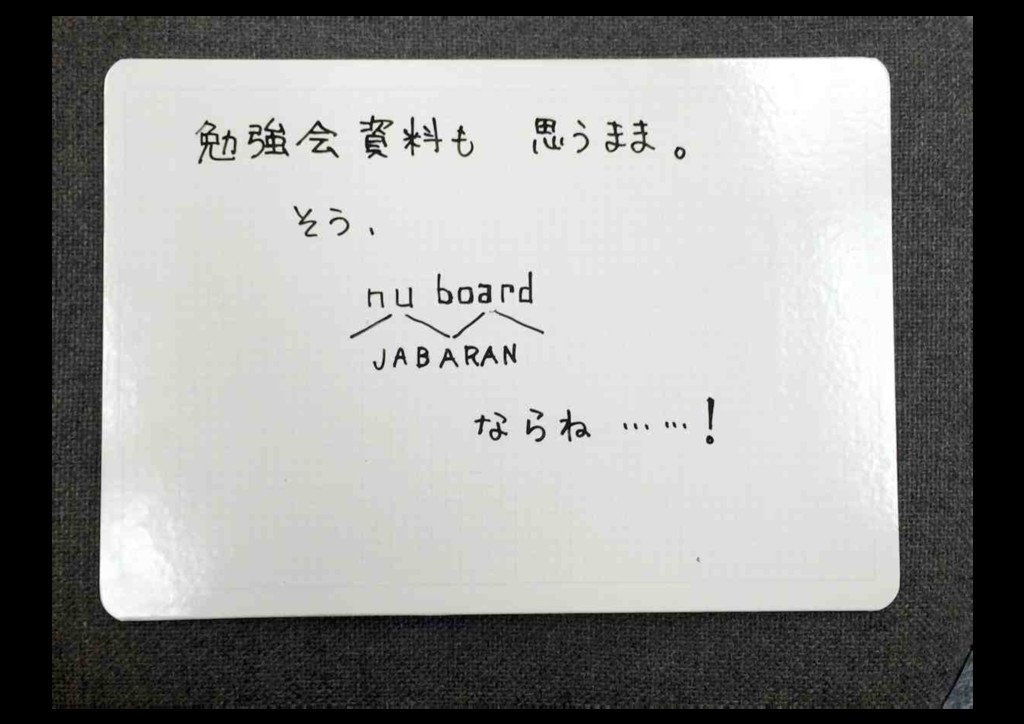 勉強会資料も 思うまま。
そう、
nu board
JABARAN
ならね ……！